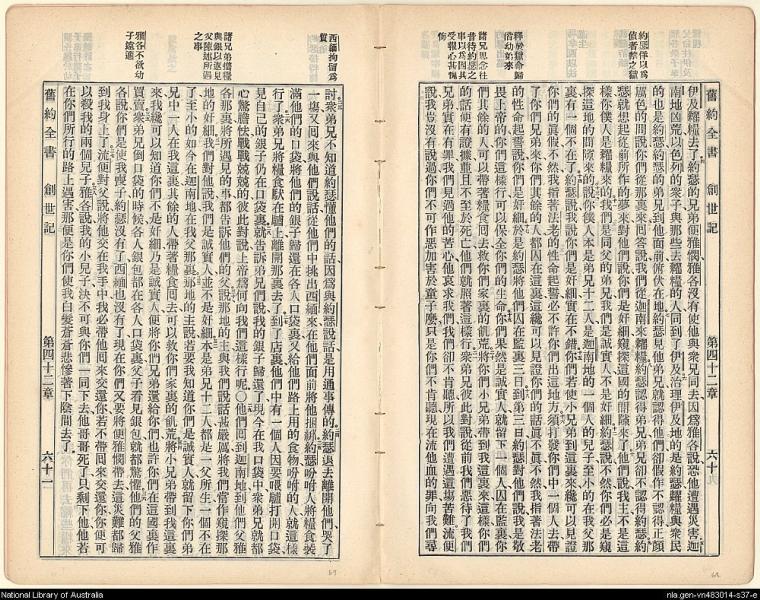 舊約全書 創世記 第四十二章 六十
約瑟佯以爲値者禁之獄
釋於獄命歸偕幼弟來
諸兄思念往昔待約瑟之事以爲因其受報心甚愧怖
伊及糴糧去了約瑟的兄弟便雅憫雅各沒有使他與衆兄同去因爲雅各說恐他遭遇災害迦
南地凶荒以色列的衆子與那些去糴糧的人同到了伊及治理伊及地的是約瑟糶糧與衆民
的也是約瑟約瑟的弟兄到他面前俯伏在地約瑟見他弟兄就認得他們卻假作不認得正顏
厲色的問說你們從那裏來回答說我們從迦南來糴糧約瑟認得弟兄弟兄卻不認得約瑟約
瑟就想起從前所作的夢來對他們說你們是奸細窺探這國的間隙來了他們說我主不是這
樣你僕人是糴糧來的我們是同父的弟兄我們是誠實人不是奸細約瑟說不然你們必是窺
探這地的間隙來的回說你僕人本是弟兄十二人是迦南地的一個人的兒子至小的在我父那
裏有一個不在了約瑟說我說你們是奸細實在不錯你們若使小兄弟到這裏來纔可以見證
你們的眞假不然我指著法老的性命起誓必不許你們出這地方須打發你們中一個人去帶
了你們兄弟來你們其餘的人都囚在這裏這纔可以見證你們的話眞不眞不然我指著法老
的性命起誓說你們是奸細於是約瑟將他們囚在監裏三日到第三日約瑟對他們說我是敬
畏上帝的你們這樣行可以保全你們的生命你們果然是誠實人就留下一個人囚在監裏你
們其餘的人可以帶著糧食囘去救你們家裏的飢荒將你們小兄弟帶到我這裏來這樣你們
的話便有證據並且不至於死亡他們就照著這樣行衆弟兄彼此對說從前我們惡待了我們
兄弟實在有罪我們見過他的苦心他哀求我們我們卻不肯聽所以我們遭遇這場苦難流便
說我豈沒有說過你們不可作惡加害於童子麼只是你們不肯聽現在流他血的罪向我們尋
西緬拘留爲質
諸兄弟備糧與銀以返見父陳述所遇之事
雅各不欲幼子遠適
討衆弟兄不知道約瑟懂他們的話因爲與約瑟說話是用通事傳的約瑟退去離開他們哭了
一塲又囘來與他們說話從他們中挑出西緬來在他們面前將他捆綁約瑟吩咐人將糧食裝
滿他們的口袋將他們的銀子歸還在各人口袋裏又給他們路上用的食物吩咐的人就這樣
行了衆弟兄將糧食馱在驢上離開那裏去了到了店裏他們中有一個人因要喂驢打開口袋
見自己的銀子仍在口袋裏就告訴弟兄們說我的銀子歸還了現今在我口袋中衆弟兄就都
心驚膽怯戰戰兢兢的彼此對說上帝爲何向我們這樣行呢〇他們囘到迦南地到他們父雅
各那裏將所遇見的事都告訴他們的父說那地的主與我們說話甚嚴厲將我們當作窺探那
地的奸細我們對他說我們是誠實人並不是奸細本是弟兄十二人都是一父所生一個不在
了至小的如今在迦南地在我父那裏那地的主說若要我知道你們是誠實人就留下你們弟
兄中一人在我這裏其餘的人帶著糧食囘去可以救你們家裏的飢荒將小兄弟帶到我這裏
來我纔可以知道你們不是奸細乃是誠實人便將你們弟兄還給你們也許你們在這國裏作
買賣衆弟兄倒口袋的時候各人銀包都在各人口袋裏父子看見銀包就都懼怕他們的父雅
各說你們是使我喪子約瑟沒有了西緬也沒有了現在你們又要將便雅憫帶去這災難都歸
到我身上了流便對父說將他交在我手中我必帶他囘來交還你若不帶囘來交還你你便可
以殺我的兩個兒子雅各說我的小兒子決不可與你們一同下去他哥哥死了只剩下他他若
在你們所行的路上遇害那便是你們使我白髮蒼蒼悲慘著下陰間去了
舊約全書 創世記 第四十二章 六十一
National Library of Australia
nla.gen-vn483014-s37-e